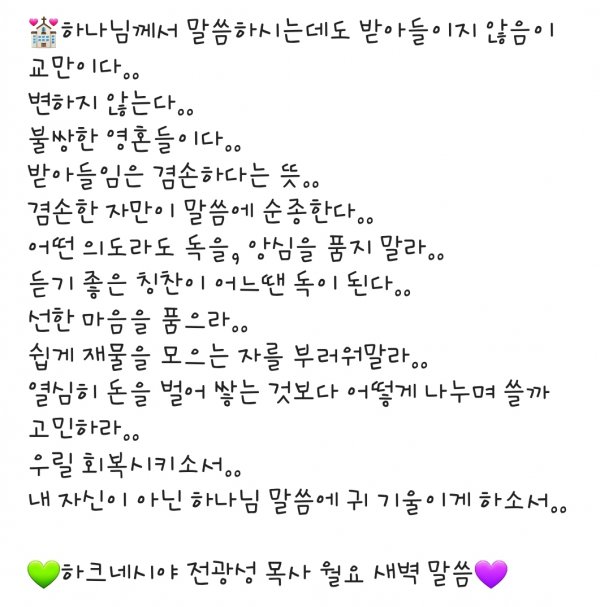 💒하나님께서 말씀하시는데도 받아들이지 않음이
교만이다..
변하지 않는다..
불쌍한 영혼들이다..
받아들임은 겸손하다는 뜻..
겸손한 자만이 말씀에 순종한다..
어떤 의도라도 독을, 앙심을 품지 말라..
듣기 좋은 칭찬이 어느땐 독이 된다..
선한 마음을 품으라..
쉽게 재물을 모으는 자를 부러워말라..
열심히 돈을 벌어 쌓는 것보다 어떻게 나누며 쓸까
고민하라..
우릴 회복시키소서..
내 자신이 아닌 하나님 말씀에 귀 기울이게 하소서..
💚하크네시야 전광성 목사 월요 새벽 말씀💜